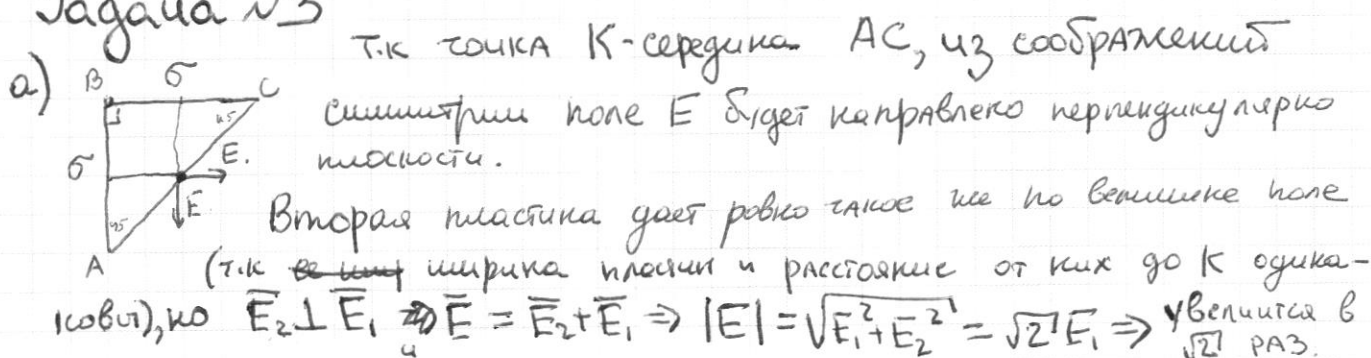 Задача №3
Т.к точка К-середина AC, из соображений
а) B σ C симметрии поле E будет направлено перпендикулярно
45 E. плоскости.
σ E Вторая пластина дает ровно такое же по величине поле
45
A (т.к ширина пластин и расстояние от них до К одина-
ковы), но E̅₂⊥E̅₁ и E̅ = E̅₂+E̅₁ ⇒ |E| = √(E₁²+E₂²) = √2 E₁ ⇒ увеличится в
√2 РАЗ.